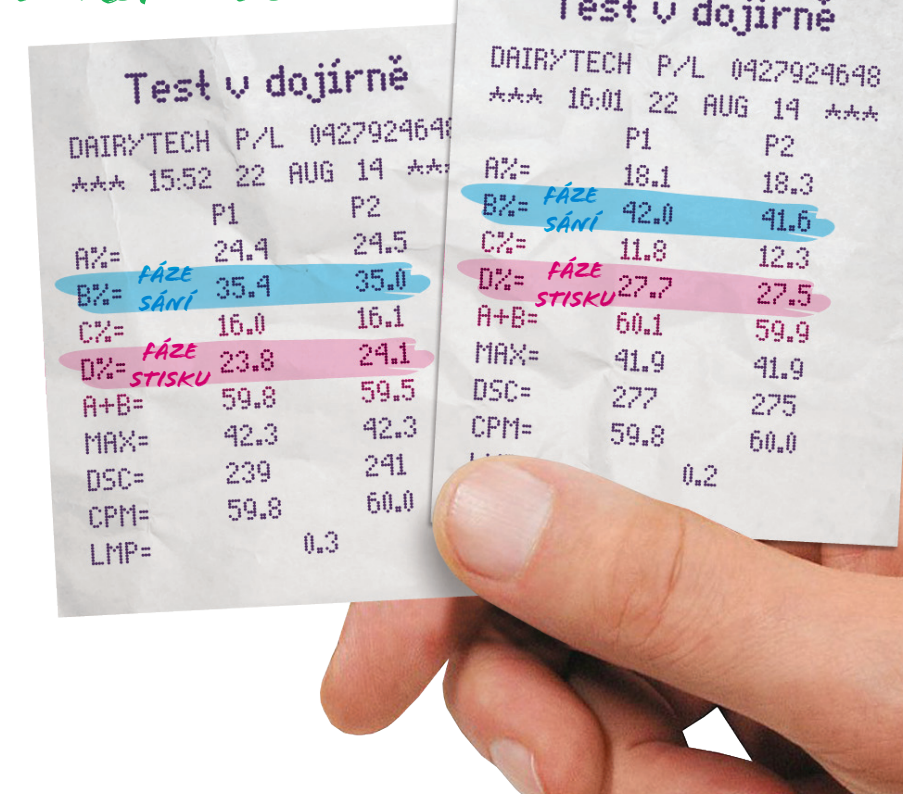 Test v dojírně
DAIRYTECH P/L 0427924648
*** 15:52 22 AUG 14 **
P1 P2
A%= 24.4 24.5
B%= FÁZE SÁNÍ 35.4 35.0
C%= 16.0 16.1
D%= FÁZE STISKU 23.8 24.1
A+B= 59.8 59.5
MAX= 42.3 42.3
DSC= 239 241
CPM= 59.8 60.0
LMP= 0.3
Test v dojírně
DAIRYTECH P/L 0427924648
*** 16:01 22 AUG 14 ***
P1 P2
A%= 18.1 18.3
B%= FÁZE SÁNÍ 42.0 41.6
C%= 11.8 12.3
D%= FÁZE STISKU 27.7 27.5
A+B= 60.1 59.9
MAX= 41.9 41.9
DSC= 277 275
CPM= 59.8 60.0
0.2